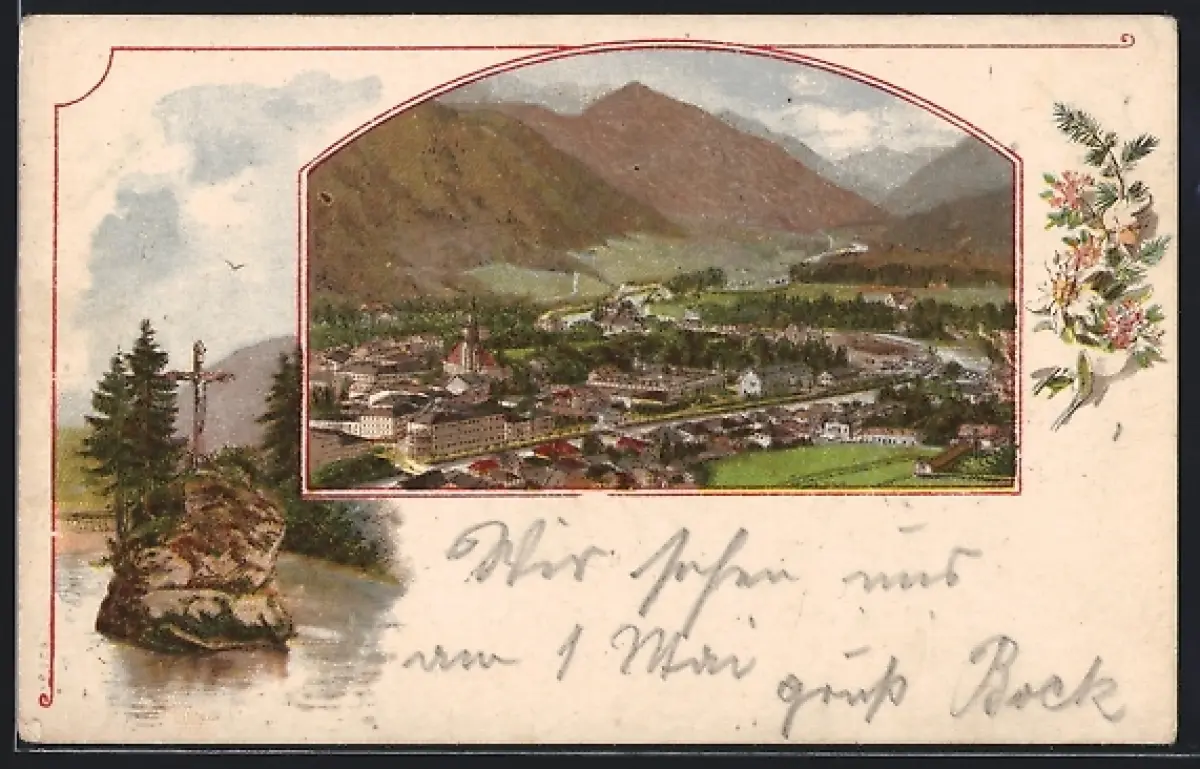 Wir sehen uns
am 1 Mai
gruß Bock